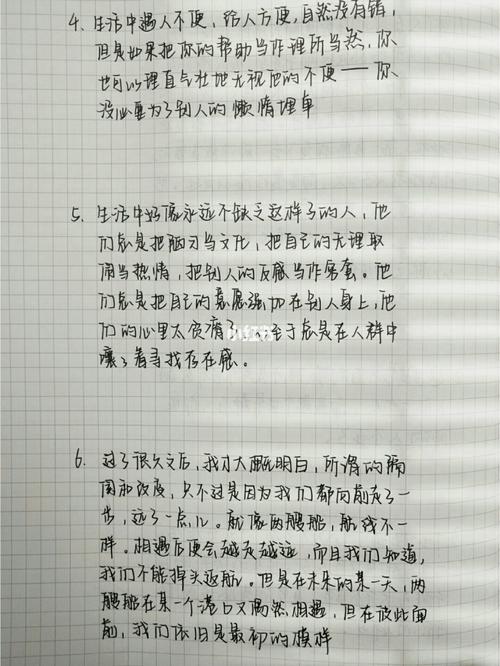 4. 生活中遇人不便，给人方便，自然没有错，
但是如果把你的帮助当作理所当然，你
也可以理直气壮地无视他的不便——你
没必要为了别人的懒惰埋单
5. 生活中好像永远不缺乏这样子的人，他
们总是把陋习当文化，把自己的无理取
闹当热情，把别人的反感当作客套。他
们总是把自己的意愿强加在别人身上，他
们的心里太贫瘠了 至于总是在人群中
嚷嚷着寻找存在感。
小红书
6. 过了很久之后，我才大概明白，所谓的隔
阂和改变，只不过是因为我们都向前走了一
步，远了一点儿。就像两艘船，航线不一
样。相遇后便会越走越远，而且我们知道，
我们不能掉头返航。但是在未来的某一天，两
艘船在某一个港口又偶然相遇，但在彼此面
前，我们依旧是最初的模样